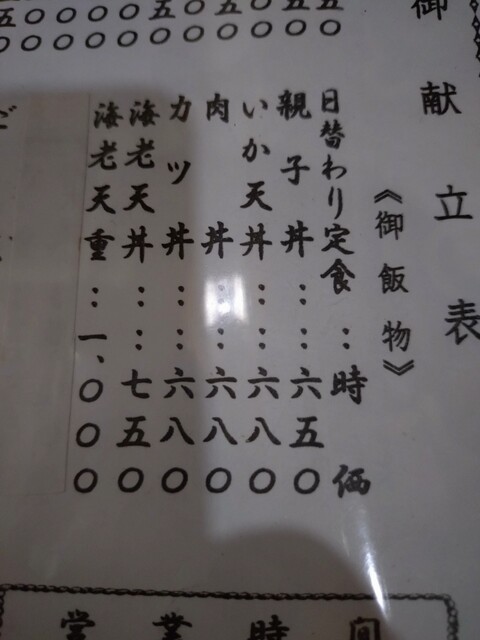 御献立表
《御飯物》
日替わり定食：時価
親子丼：：六五〇
いか天丼：：六八〇
肉丼：：六八〇
カツ丼：：六八〇
海老天丼：：七五〇
海老天重：一、〇〇〇
営業時間